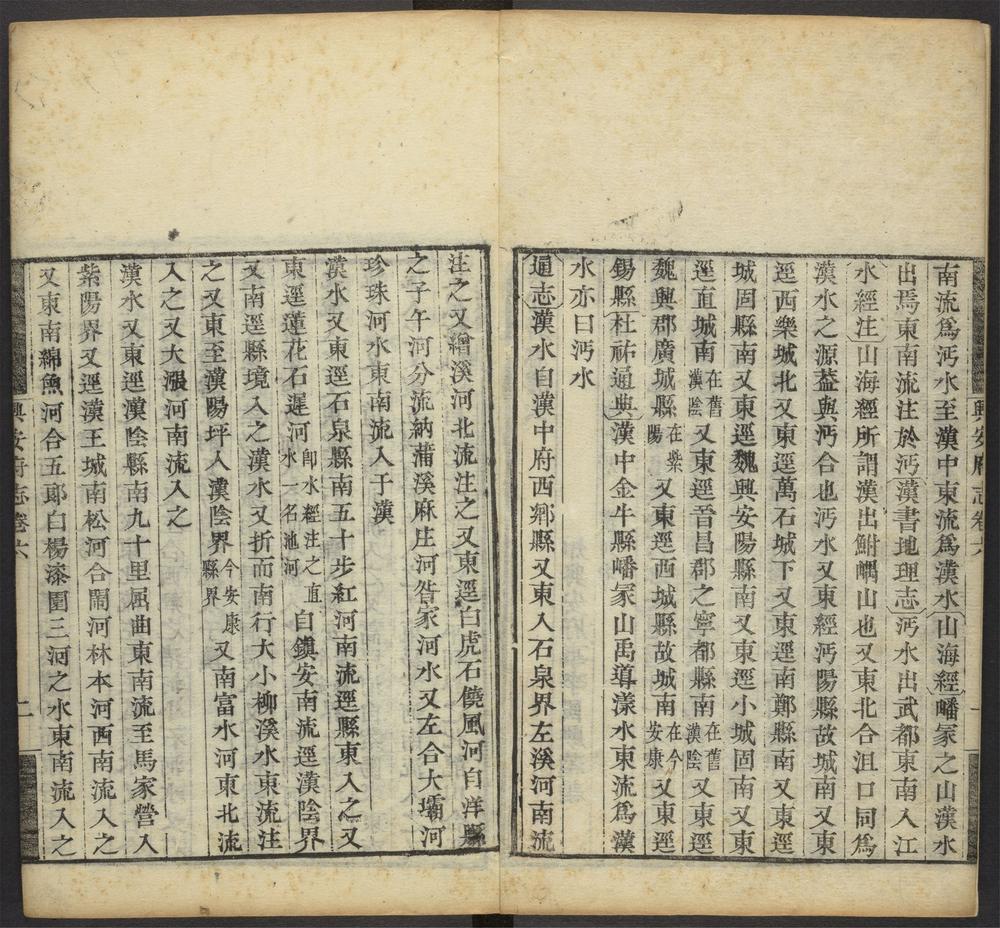 南流爲沔水至漢中東流爲漢水山海經嶓冡之山漢水
出焉東南流注於沔漢書地理志沔水出武都東南入江
水經注山海經所謂漢出鮒嵎山也又東北合沮口同爲
漢水之源葢與沔合也沔水又東經沔陽縣故城南又東
逕西樂城北又東逕萬石城下又東逕南鄭縣南又東逕
城固縣南又東逕魏興安陽縣南又東逕小城固南又東
逕直城南在舊漢陰又東逕晉昌郡之寧都縣南在舊漢陰又東逕
魏興郡廣城縣在紫陽又東逕西城縣故城南在今安康又東逕
錫縣杜祐通典漢中金牛縣嶓冡山禹導漾水東流爲漢
水亦曰沔水
通志漢水自漢中府西鄉縣又東入石泉界左溪河南流
興安府志卷六
一
注之又繒溪河北流注之又東逕白虎石饒風河自洋縣
之子午河分流納蒲溪麻庄河昝家河水又左合大壩河
珍珠河水東南流入于漢
漢水又東逕石泉縣南五十步紅河南流逕縣東入之又
東逕蓮花石遲河卽水經注之直水一名池河自鎮安南流逕漢陰界
又南逕縣境入之漢水又折而南行大小柳溪水東流注
之又東至漢陽坪入漢陰界今安康縣界又南富水河東北流
入之又大漲河南流入之
漢水又東逕漢陰縣南九十里屈曲東南流至馬家營入
紫陽界又逕漢王城南松河合閙河林本河西南流入之
又東南綿魚河合五郎白楊漆園三河之水東南流入之
興安府志卷六
二